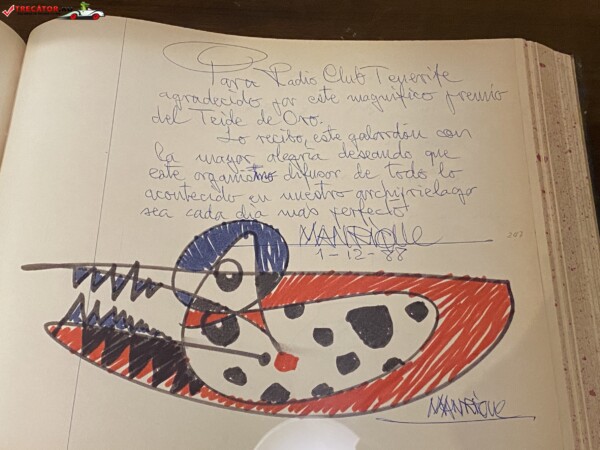 TRECATOR
Para Radio Club Tenerife
agradecido por este magnífico premio
del Teide de Oro.
Lo recibo, este galardón con
la mayor alegría deseando que
este difusor de todo lo
acontecido en nuestro archipielago
sea cada día mas perfecto
MANRIQUE
1-12-88
207
MANRIQUE